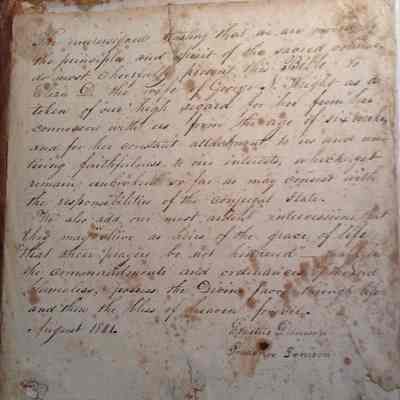 The undersigned trusting that we are moved by
the principles and spirit of the sacred volume
do most cheerfully present this Bible to
Eliza D. the wife of George N. Wright as a
token of our high regard for her from her
connexion with us from the age of six weeks,
and for her constant attachment to us and un
tiring faithfulness to our interests, which yet
remain unbroken so far as may consist with
the responsibilities of the conjugal State.
We also add our most ardent intercessions that
they may live as heirs of the grace of life
that their prayers be not hindered walk in
the commandments and ordinances of the Lord
blameless, possess the Divine favor through life
and then the bliss of heaven forever.
August 1841.
Denison
Denison